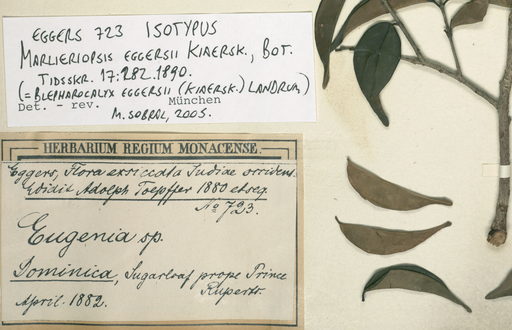 EGGERS 723 ISOTYPUS
MARLIERIOPSIS EGGERSII KIAERSK., BOT.
TIDSSKR. 17:282. 1890.
(= BLEPHAROCALYX EGGERSII (KIAERSK.) LANDRUM)
Det. - rev. München
M. SOBRAL, 2005.
HERBARIUM REGIUM MONACENSE.
Eggers, Flora exsiccata Indiae occident.
Edidit Adolph Toepffer 1880 et seq.
No 723.
Eugenia sp.
Dominica, Sugarloaf prope Prince
Ruperts.
April. 1882.